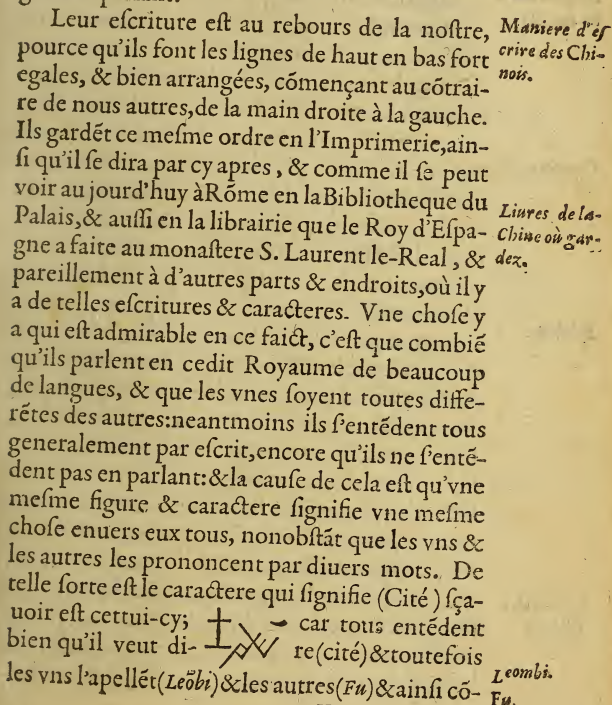 Leur eſcriture eſt au rebours de la noſtre,
pource qu'ils font les lignes de haut en bas fort
egales, & bien arrangées, cõmençant au cõtrai-
re de nous autres, de la main droite à la gauche.
Ils gardẽt ce meſme ordre en l'Imprimerie, ain-
ſi qu'il ſe dira par cy apres, & comme il ſe peut
voir aujourd'huy à Rõme en la Bibliotheque du
Palais, & auſſi en la librairie que le Roy d'Eſpa-
gne a faite au monaſtere S. Laurent le-Real, &
pareillement à d'autres parts & endroits, où il y
a de telles eſcritures & caracteres. Vne choſe y
a qui eſt admirable en ce faict, c'eſt que combiẽ
qu'ils parlent en cedit Royaume de beaucoup
de langues, & que les vnes ſoyent toutes diffe-
rẽtes des autres: neantmoins ils ſ'entẽdent tous
generalement par eſcrit, encore qu'ils ne ſ'entẽ-
dent pas en parlant: & la cauſe de cela eſt qu'vne
meſme figure & caractere ſignifie vne meſme
choſe enuers eux tous, nonobſtãt que les vns &
les autres les prononcent par diuers mots. De
telle ſorte eſt le caractere qui ſignifie (Cité) ſça-
uoir eſt cettui-cy; car tous entẽdent
bien qu'il veut di- re (cité) & toutefois
les vns l'apellẽt (Leõbi) & les autres (Fu) & ainſi cõ-
Maniere d'eſ
crire des Chi-
nois.
Liures de la-
Chine où gar-
dez.
Leombi.
Fu.